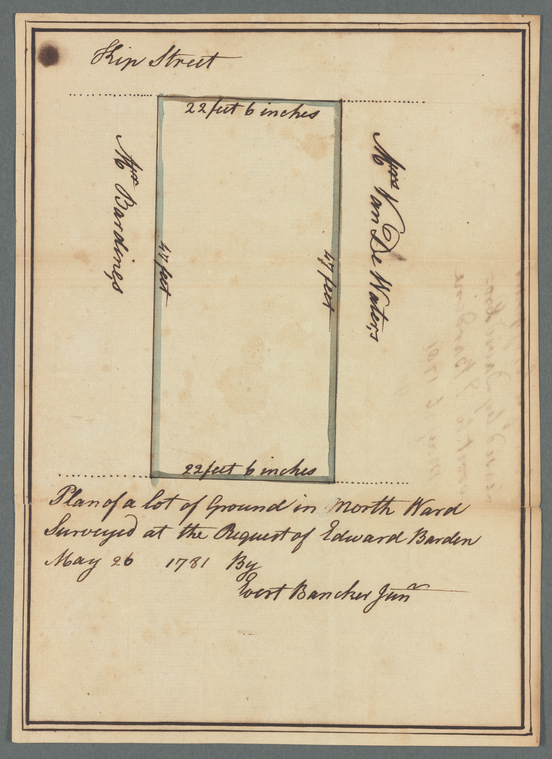 Kip Street
22 feet 6 inches
Mrs Bardines
47 feet
47 feet
Mrs Van De Waters
22 feet 6 inches
Plan of a lot of Ground in North Ward
Surveyed at the Request of Edward Barden
May 26 1781 By
Evert Bancker Junr